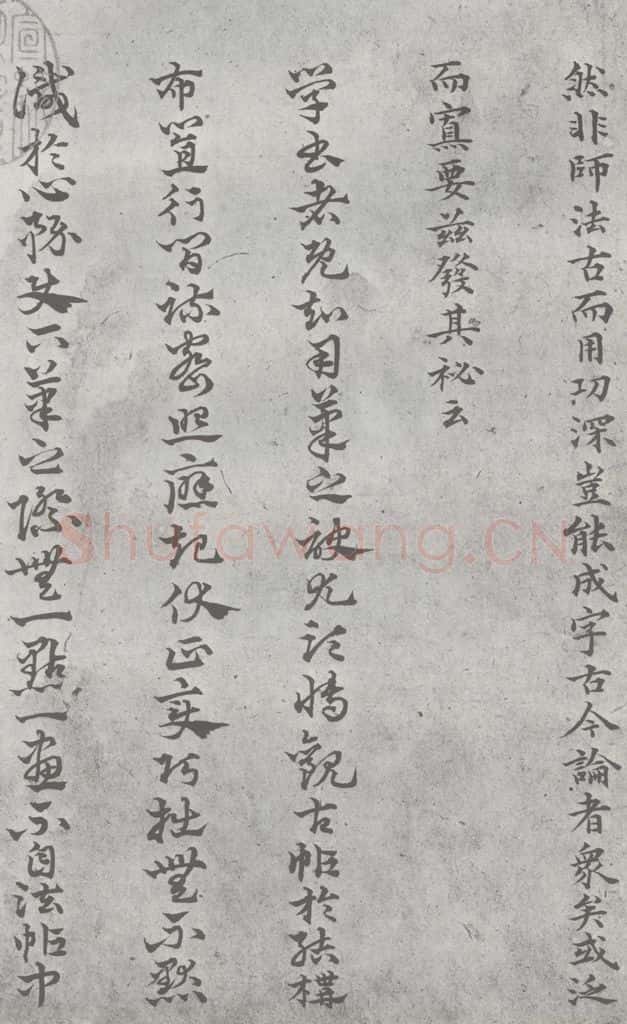 然非師法古而用功深豈能成字古今論者衆矣或泛
而寡要茲發其祕云
学书者既知用筆之訣尤須博觀古帖於結構
布置行間疎密照應起伏正變巧拙無不默
識於心務使下筆之際無一點一画不自法帖中
Shufawang.CN